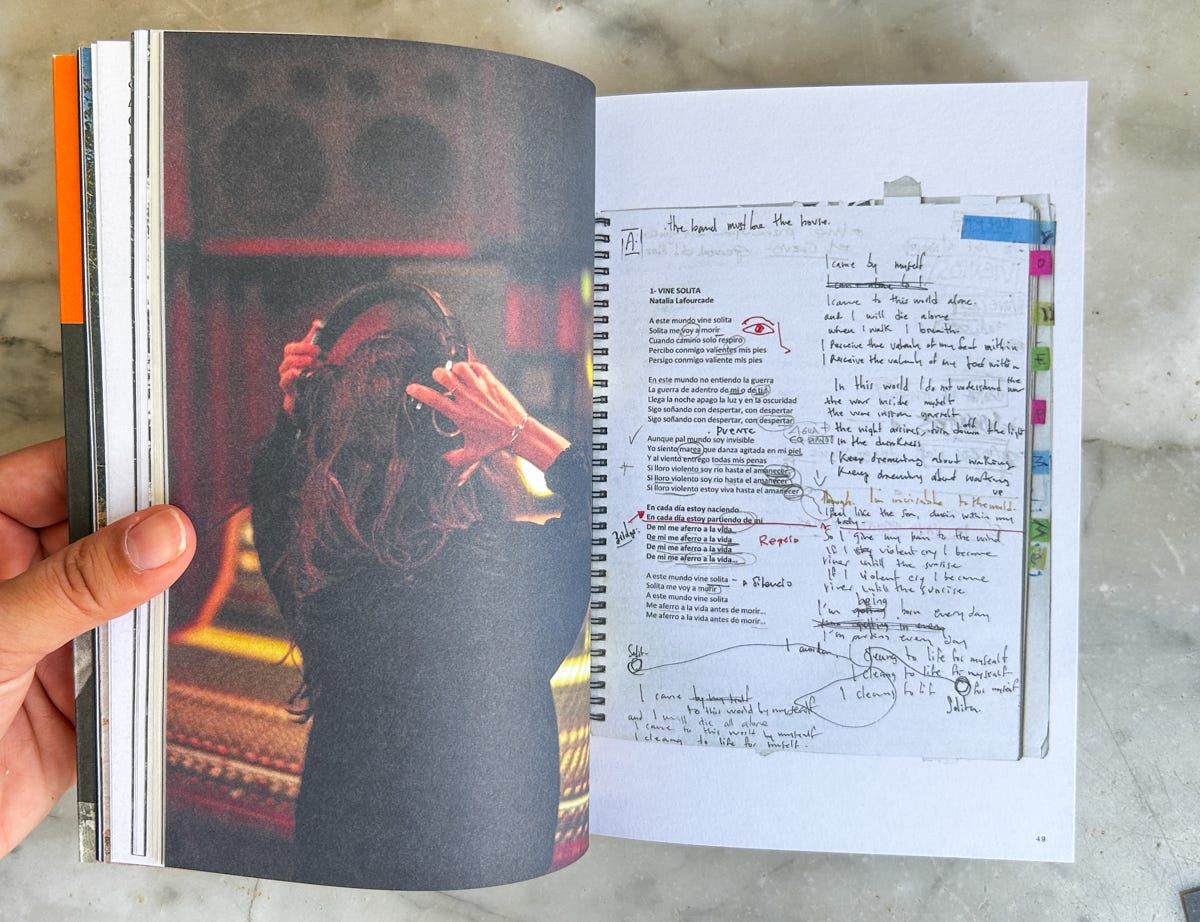 the band must be the house.
A.
1- VINE SOLITA
Natalia Lafourcade
A este mundo vine solita
Solita me voy a morir
Cuando camino solo respiro
Percibo conmigo valientes mis pies
Persigo conmigo valiente mis pies
En este mundo no entiendo la guerra
La guerra de adentro de mi o de ti
Llega la noche apago la luz y en la oscuridad
Sigo soñando con despertar, con despertar
Sigo soñando con despertar, con despertar
. PUENTE
Aunque pal mundo soy invisible
Yo siento marea que danza agitada en mi piel
Y al viento entrego todas mis penas
Si lloro violento soy río hasta el amanecer
Si lloro violento soy río hasta el amanecer
Si lloro violento estoy viva hasta el amanecer
En cada día estoy naciendo
En cada día estoy partiendo de mí
De mi me aferro a la vida...
De mi me aferro a la vida...
De mi me aferro a la vida...
De mi me aferro a la vida...
Bridge
Respiro
A este mundo vine solita
Solita me voy a morir
A este mundo vine solita
Me aferro a la vida antes de morir...
Me aferro a la vida antes de morir...
Silencio
I came by myself
I came to this world alone.
and I will die alone
when I walk I breath
I perceive the valenty of my feet within
I perceive the valenty of my feet within
In this world I do not understand the war
the war inside myself
the war inside yourself
the night arrives, turn off the light
in the darkness
I Keep dreaming about waking
Keep dreaming about waking up
though I'm invisible to the world.
I feel like the sea, dancin within my
body.
So I give my pain to the wind
If I violent cry I become
river untill the sunrise
If I violent cry I became
river, untill the sunrise
I'm being born every day
I'm parting every day
I cleang to life for myself
I cleang to life for myself
I cleang to life for myself
Solita.
I came to this world by myself
and I will die all alone
I came to this world by myself
I cleang to life for myself.
49